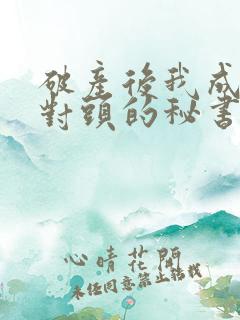 破產後我成
對頭的秘書
心晴花開
未經同意禁止轉載